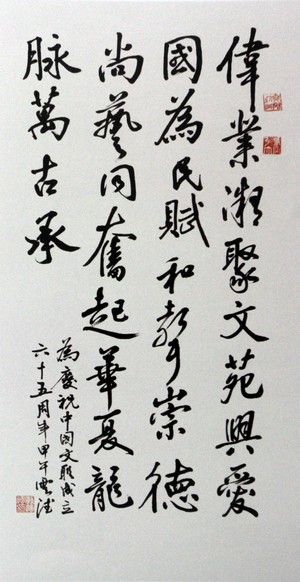 偉業凝聚文苑興愛
國為民賦和聲崇德
尚藝同奮起華夏龍
脉萬古承
為慶祝中国文联成立
六十五周年甲午